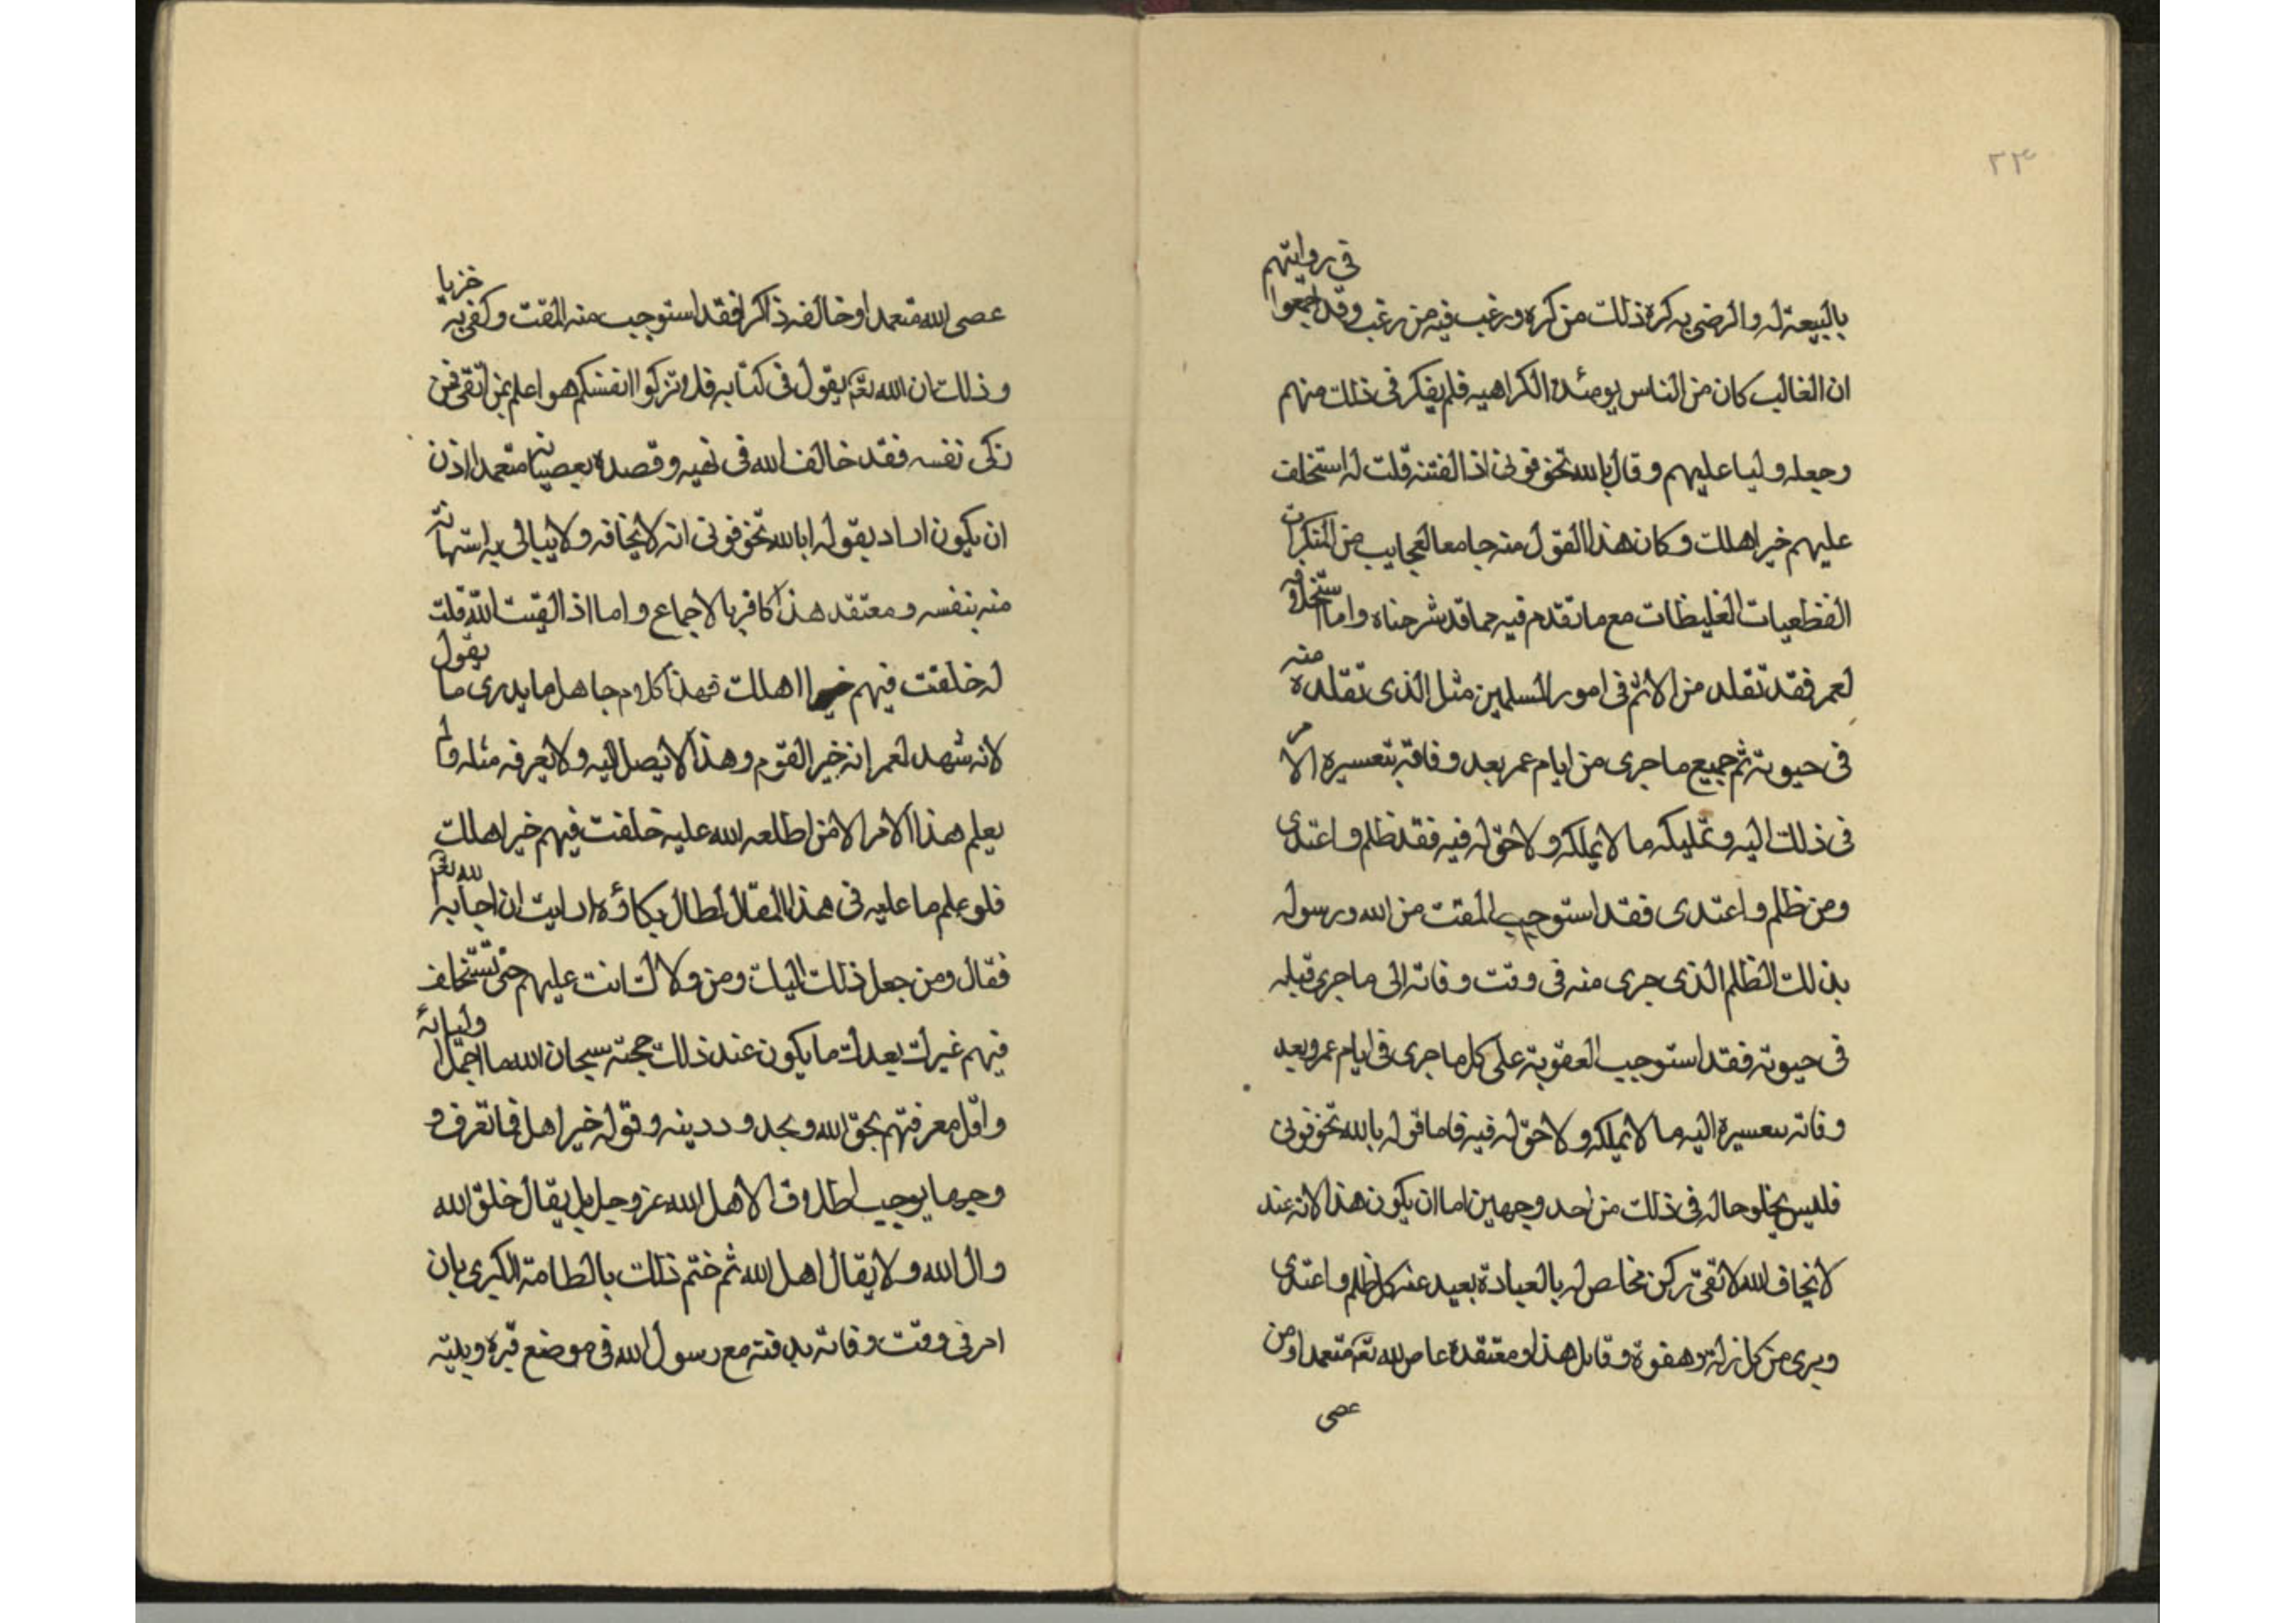 ٢٣
بالبيعة له والرضى به كره ذلك من كره ورغب فيه من رغب وقد اجمعوا في روايتهم
ان الغالب كان من الناس يومئذ الكراهيه فلم يفكر في ذلك منهم
وجعله وليا عليهم وقال بالله تخوفونى اذا لقتنه قلت له استخلف
عليهم خير اهلك وكان هذا القول منه جامعا لعجايب من المنكرات
الفظعيات الغليظات مع ما تقدم فيه مما قد شرحناه واما استخلافه
لعمر فقد تقلد من الاثم في امور المسلمين مثل الذى تقلده منه
في حيوته ثم جميع ما جرى من ايام عمر بعد وفاته بتعسيره الامر
في ذلك اليه وتمليكه ما لا يملكه ولا حق له فيه فقد ظلم واعتدى
ومن ظلم واعتدى فقد استوجب المقت من الله ورسوله
بذلك الظلم الذى جرى منه في وقت وفاته الى ما جرى قبله
في حيوته فقد استوجب العقوبة على كل ما جرى في ايام عمر وبعد
وفاته بتعسيره اليه ما لا يملكه ولا حق له فيه فاما قوله بالله تخوفونى
فليس يخلو حاله في ذلك من احد وجهين اما ان يكون هذا لانه عند
لا يخاف الله لا تقى زكى مخلص له بالعبادة بعيد عنه كل ظلم واعتدى
وبرى من كل زلة وهفوة وقايل هذا ومعتقده عاص لله تعم متعمدا ومن
عصى
عصى الله متعمدا وخالفه ذاكرا فقد استوجب منه المقت وكفى به خزيا
وذلك ان الله تعم يقول في كتابه فلا تزكوا انفسكم هو اعلم بمن اتقى فمن
زكى نفسه فقد خالف الله في نهيه وقصده بعصيانه متعمدا اذن
ان يكون اراد بقوله ابالله تخوفونى انه لا يخافه ولا يبالى به استهانة
منه بنفسه ومعتقد هذا كافر بالاجماع واما اذا لقيت الله قلت
له خلفت فيهم خير اهلك فهذا كلام جاهل ما يدرى ما يقول
لانه شهد لعمر انه خير القوم وهذا لا يصل اليه ولا يعرفه مثله ولم
يعلم هذا الامر الا من اطلعه الله عليه خلفت فيهم خير اهلك
فلو علم ما عليه في هذا المقال لطال بكاؤه ارايت ان اجابه الله تعم
فقال ومن جعل ذلك اليك ومن ولاك انت عليهم حتى تستخلف
فيهم غيرك بعدك ما يكون عند ذلك حجته سبحان الله ما اجهل اوليائه
واقل معرفتهم بحق الله وبحدود دينه وقوله خير اهل فما تعرف و
وجها يوجب اطلاق الاهل لله عز وجل بل يقال خلق الله
وال الله ولا يقال اهل الله ثم ختم ذلك بالطامة الكبرى بان
امر في وقت وفاته بدفنه مع رسول الله في موضع قبره وبيته